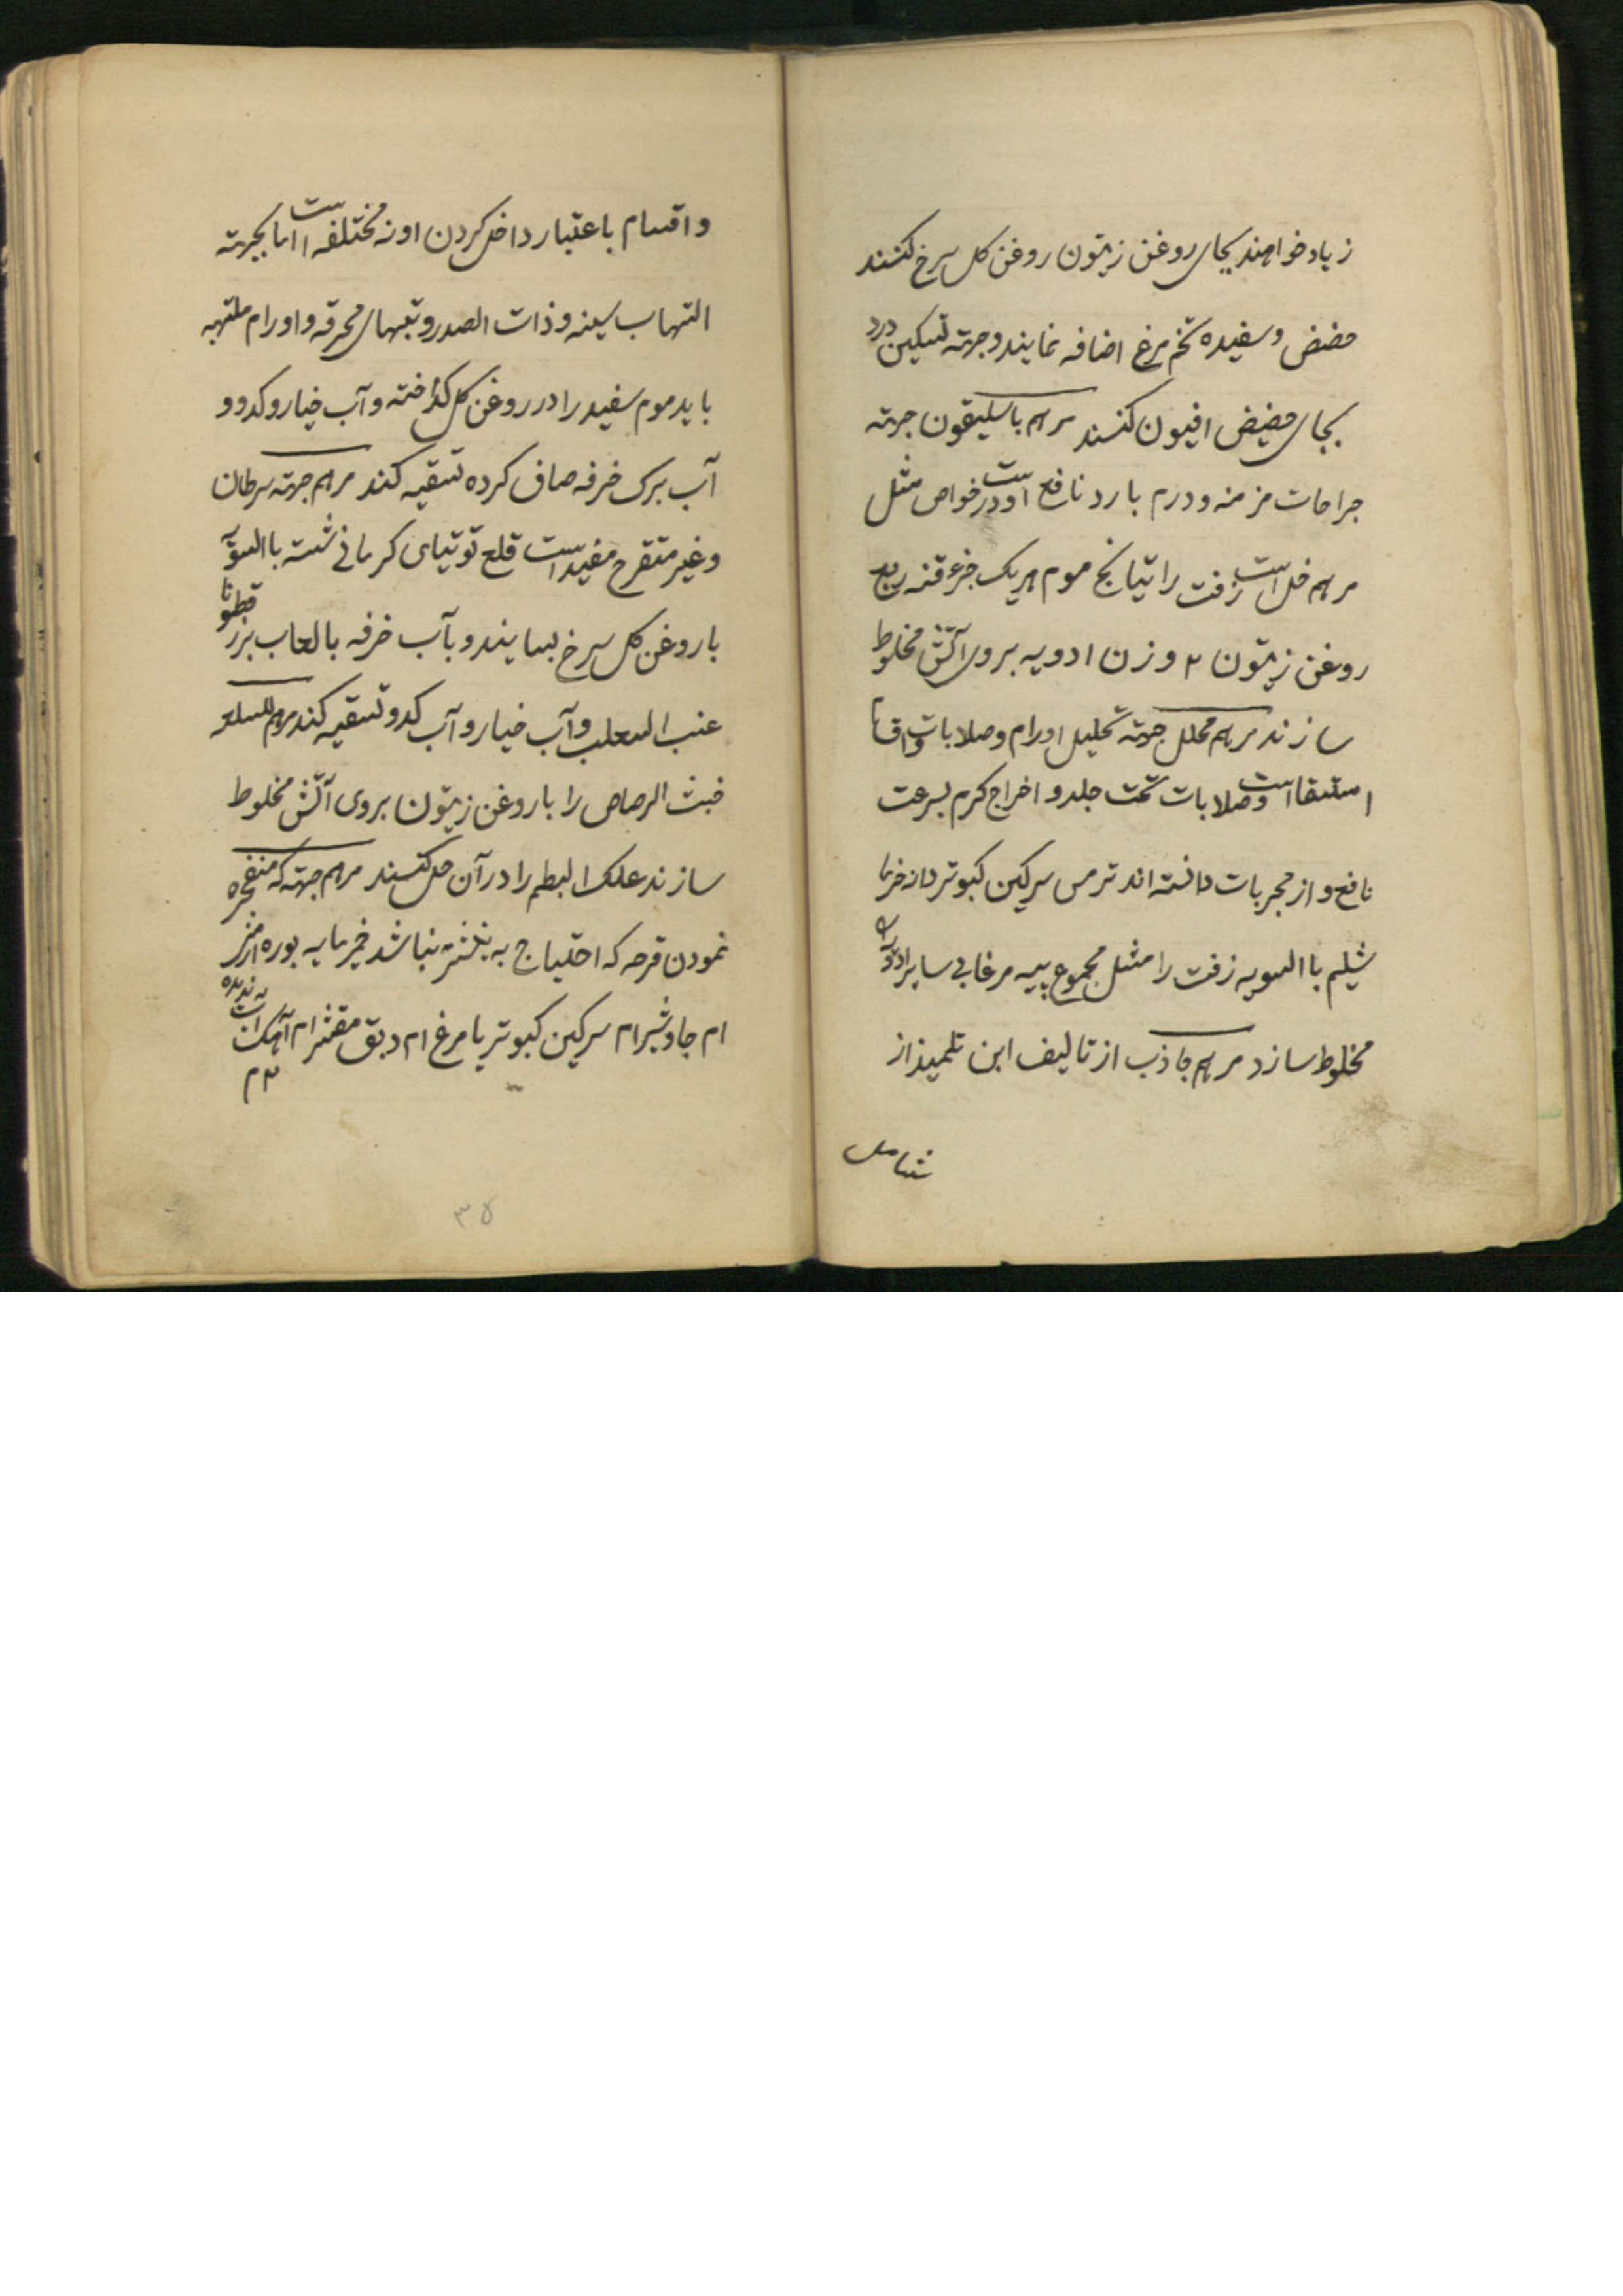 زیاد خواهند بجای روغن زیتون روغن کل سرخ کنند
حضض و سفیده تخم مرغ اضافه نمایند و جهته تسکین درد
بجای حضیض افیون کنند مرهم باسلیقون جهته
جراحات مزمنه و درم بارد نافع است و در خواص مثل
مرهم خل است زفت راتیانج موم هر یک جزء قنه ربع
روغن زیتون ۲ وزن ادویه بروی آتش مخلوط
سازند مرهم محلل جهته تحلیل اورام و صلابات و اقسام
استسقا است و صلابات تحت جلد و اخراج کرم بسرعت
نافع و از مجربات دانسته اند ترمس سرکین کبوتر دانه خرما
شیلم باالسویه زفت را مثل مجموع پیه مرغابی سایر ادویه
مخلوط سازد مرهم جاذب از تالیف ابن تلمیذ از
و اقسام باعتبار داخل کردن اوزنه مختلفه است اما بجهته
التهاب سینه و ذات الصدر و تبهای محرقه و اورام ملتهبه
باید موم سفید را در روغن کل کداخته و آب خیار و کدو و
آب برک خرفه صاف کرده تسقیه کنند مرهم جهته سرطان
و غیر متقرح مفید است قلع توتیای کرمانی شسته باالسویه
با روغن کل سرخ بسایند و بآب خرفه بالعاب بزر قطونا
عنب الثعلب و آب خیار و آب کدو تسقیه کنند مرهم للسلعه
خبث الرصاص را با روغن زیتون بروی آتش مخلوط
سازند علک البطم را در آن حل کنند مرهم جهته که منفجره
نمودن قرحه که احتیاج به نشتر نباشد خمیر مایه بوره ارمنی
ام جاوشیر ام سرکین کبوتر یا مرغ ام دبق مقشر ام آهک آب ندیده
۲م
۳۵